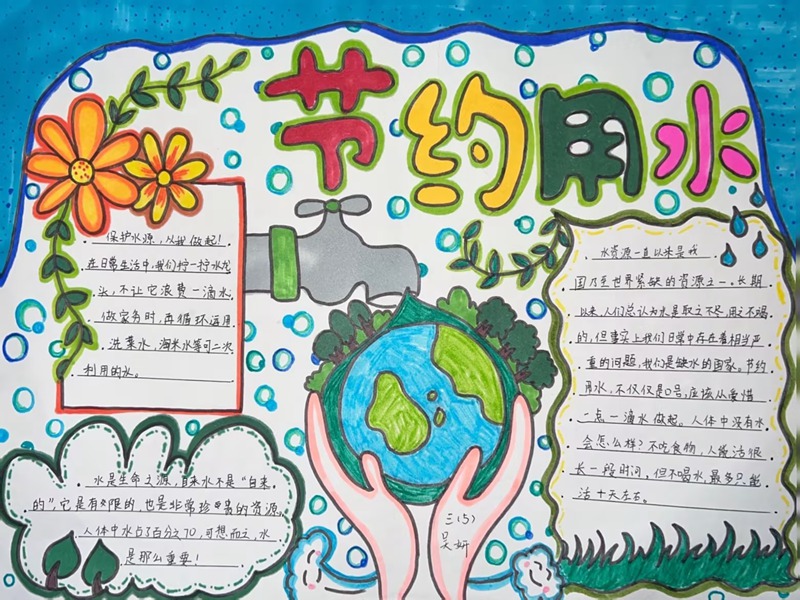 节约用水
保护水源，从我做起！
在日常生活中，我们拧一拧水龙
头，不让它浪费一滴水，
做家务时，再循环运用
洗菜水，淘米水等可二次
利用的水。
水资源一直以来是我
国乃至世界紧缺的资源之一，长期
以来，人们总认为水是取之不尽，用之不竭
的，但事实上我们日常中存在着相当严
重的问题，我们是缺水的国家。节约
用水，不仅仅是口号，应该从爱惜
一点一滴水做起。人体中没有水
会怎么样？不吃食物，人能活很
长一段时间，但不喝水，最多只能
活十天左右。
水是生命之源，自来水不是“白来
的”，它是有限的，也是非常珍贵的资源。
人体中水占了百分之70，可想而之，水
是那么重要！
三(5)
吴妍